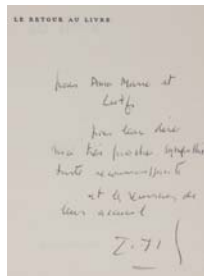 LE RETOUR AU LIVRE
pour Anne Marie et
Lutfi
pour leur dire
ma très proche sympathie
toute reconnaissante
et le souvenir de
leur accueil